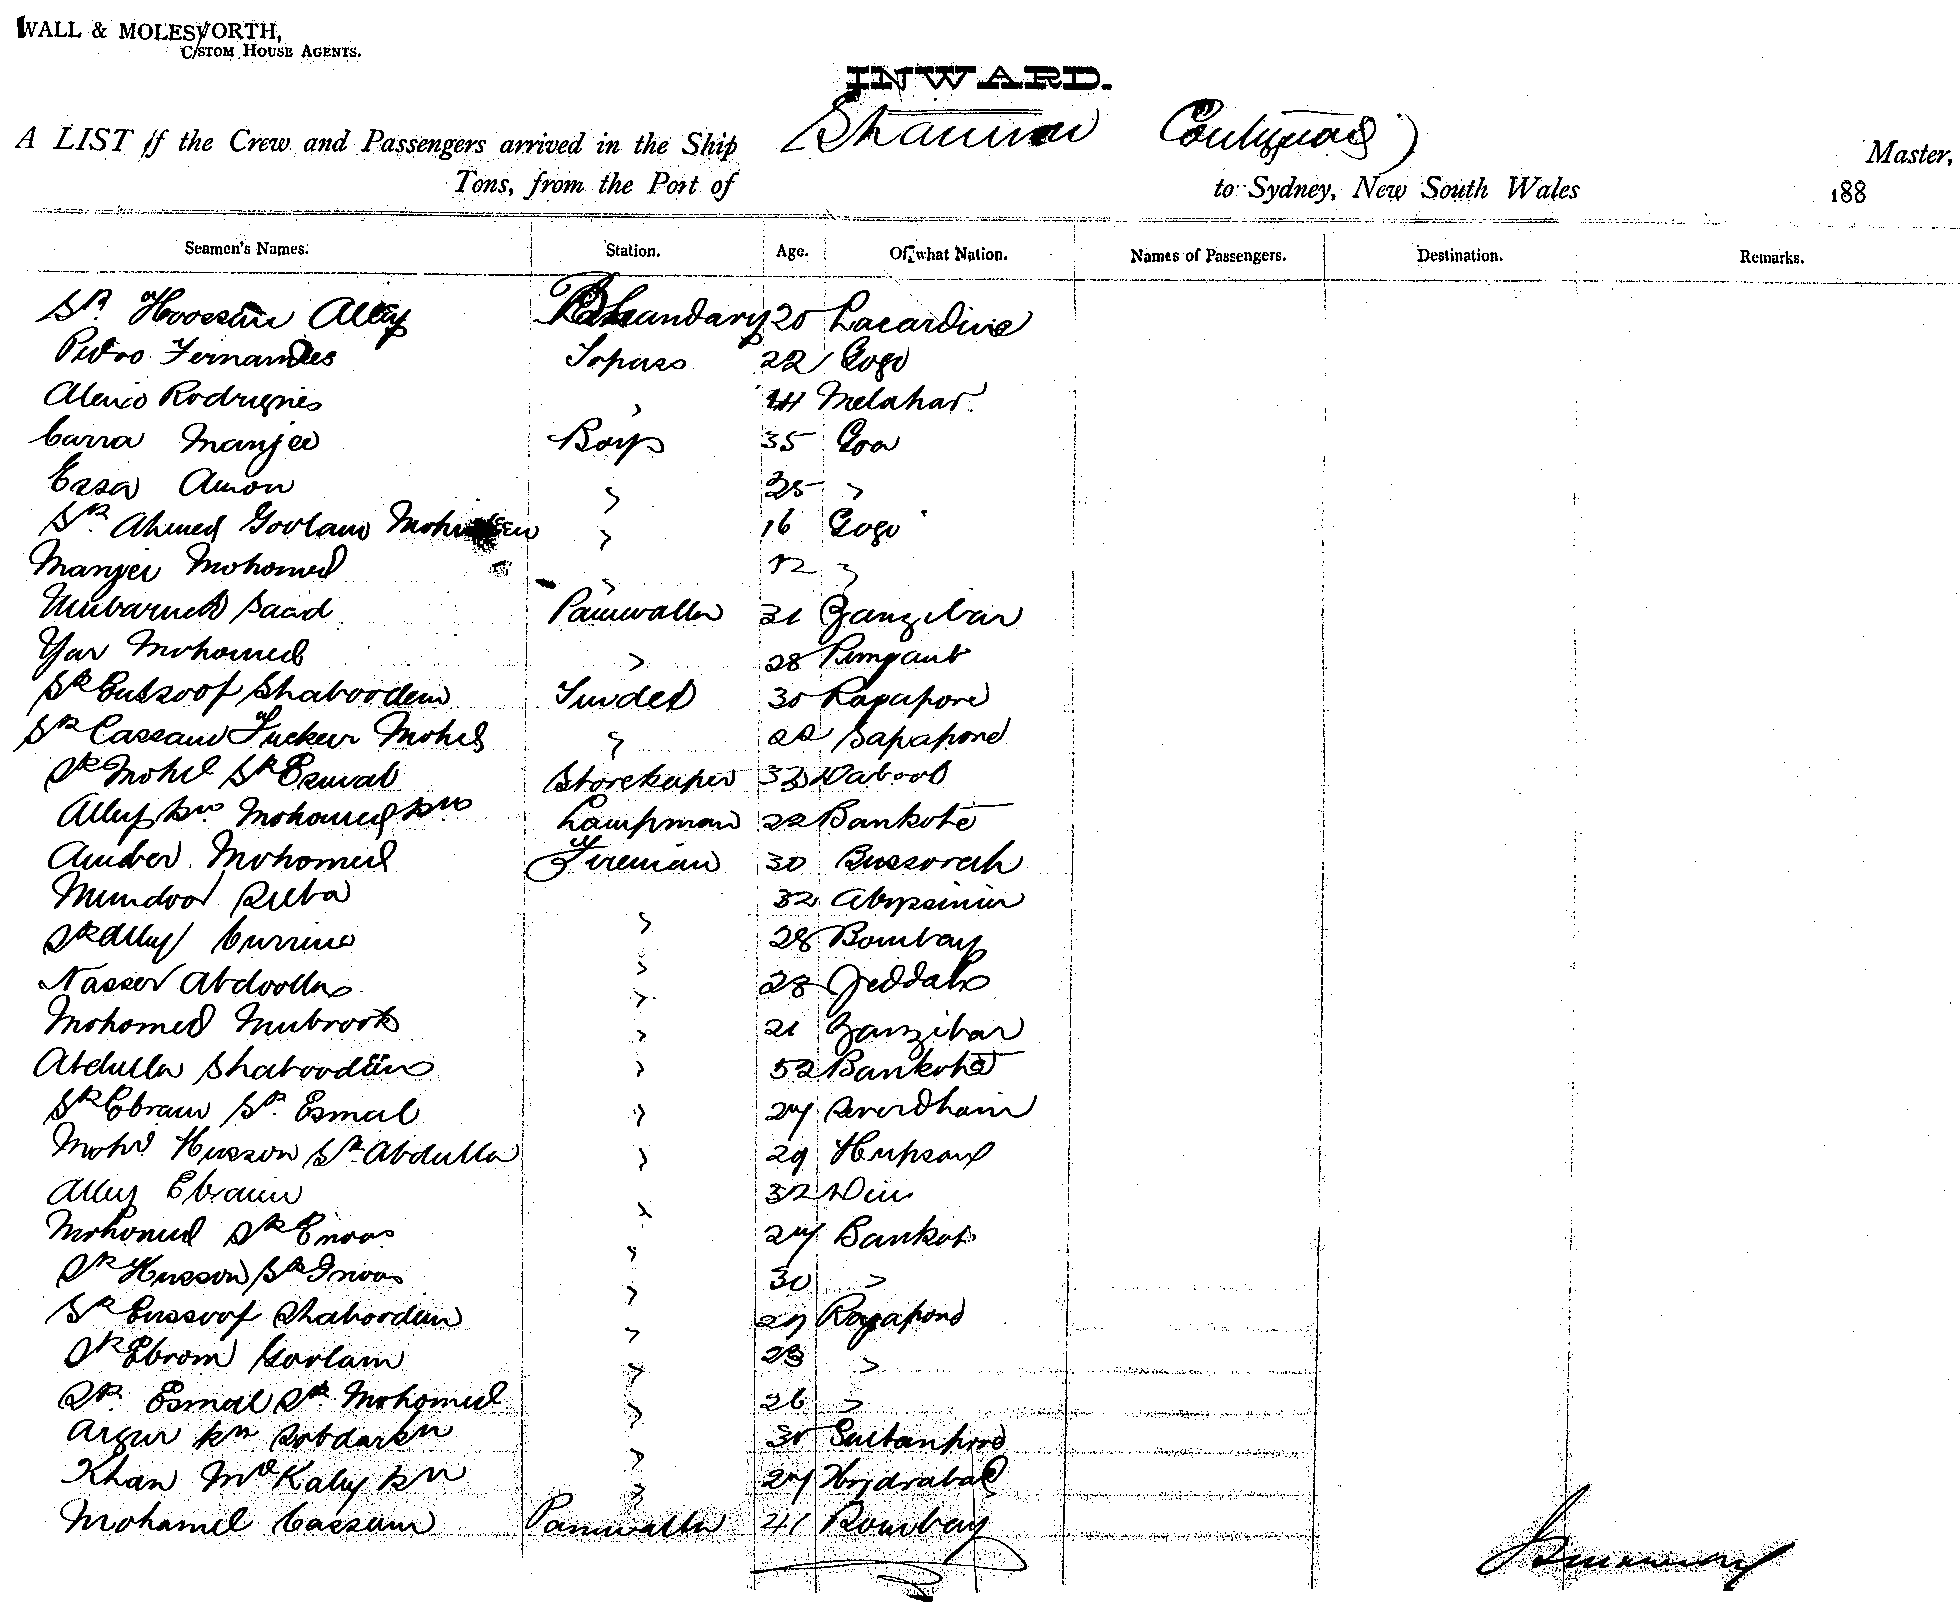 WALL & MOLESWORTH,
CUSTOM HOUSE AGENTS.
INWARD.
A LIST of the Crew and Passengers arrived in the Ship Shannon Continued) Master,
Tons, from the Port of to Sydney, New South Wales 188
Seamen's Names. Station. Age. Of what Nation. Names of Passengers. Destination. Remarks.
Sk. Hoossein Alley Bhandary 20 Lacardive
Pedro Fernandes Topass 22 Gogo
Rodrignes " Melabar
Carra Manjee Boys 35 Goa
Essa Amon " 25 "
Sk. Ahmed Goolam " 16 Gogo
Manjee Mohomed " 12 "
Mubaruck Saad Paniwalla 31 Zanzibar
Yar Mohomed " 28
Sk Eussoof Shaboodem Tindel 30 Ragapore
Sk Cassam Fuckeer Mohd " 22
Sk Mohd Sk Esmal Storekeeper 33 Dabool
Alley kn Mohomed kn Lampman 22 Bankote
Amber Mohomed Fireman 30 Bussorah
" 32 Abyssinia
Sk Alley Currim " 28 Bombay
Nasser Abdoolla " 28 Jeddah
Mohomed Mubrook " 21 Zanzibar
Abdulla Shaboodin " 52 Bankote
Sk Ebram Sk. Esmal " 24
Mohd Husson Sk Abdulla " 29
Alley Ebraim " 32 Diu
Mohomed Sk Enoos " 24 Bankot
Sk Husson Sk Inoos " 30 "
Sk Eussoof Shaboodem " 27 Ragapore
Sk Ebrom Goolam " 23 "
Sk. Esmal Sk Mohomed " 26 "
kn " 30 Sultanpore
Khan Md Kaly kn " 24 Hydrabad
Mohamed Cassum Paniwalla 41 Bombay